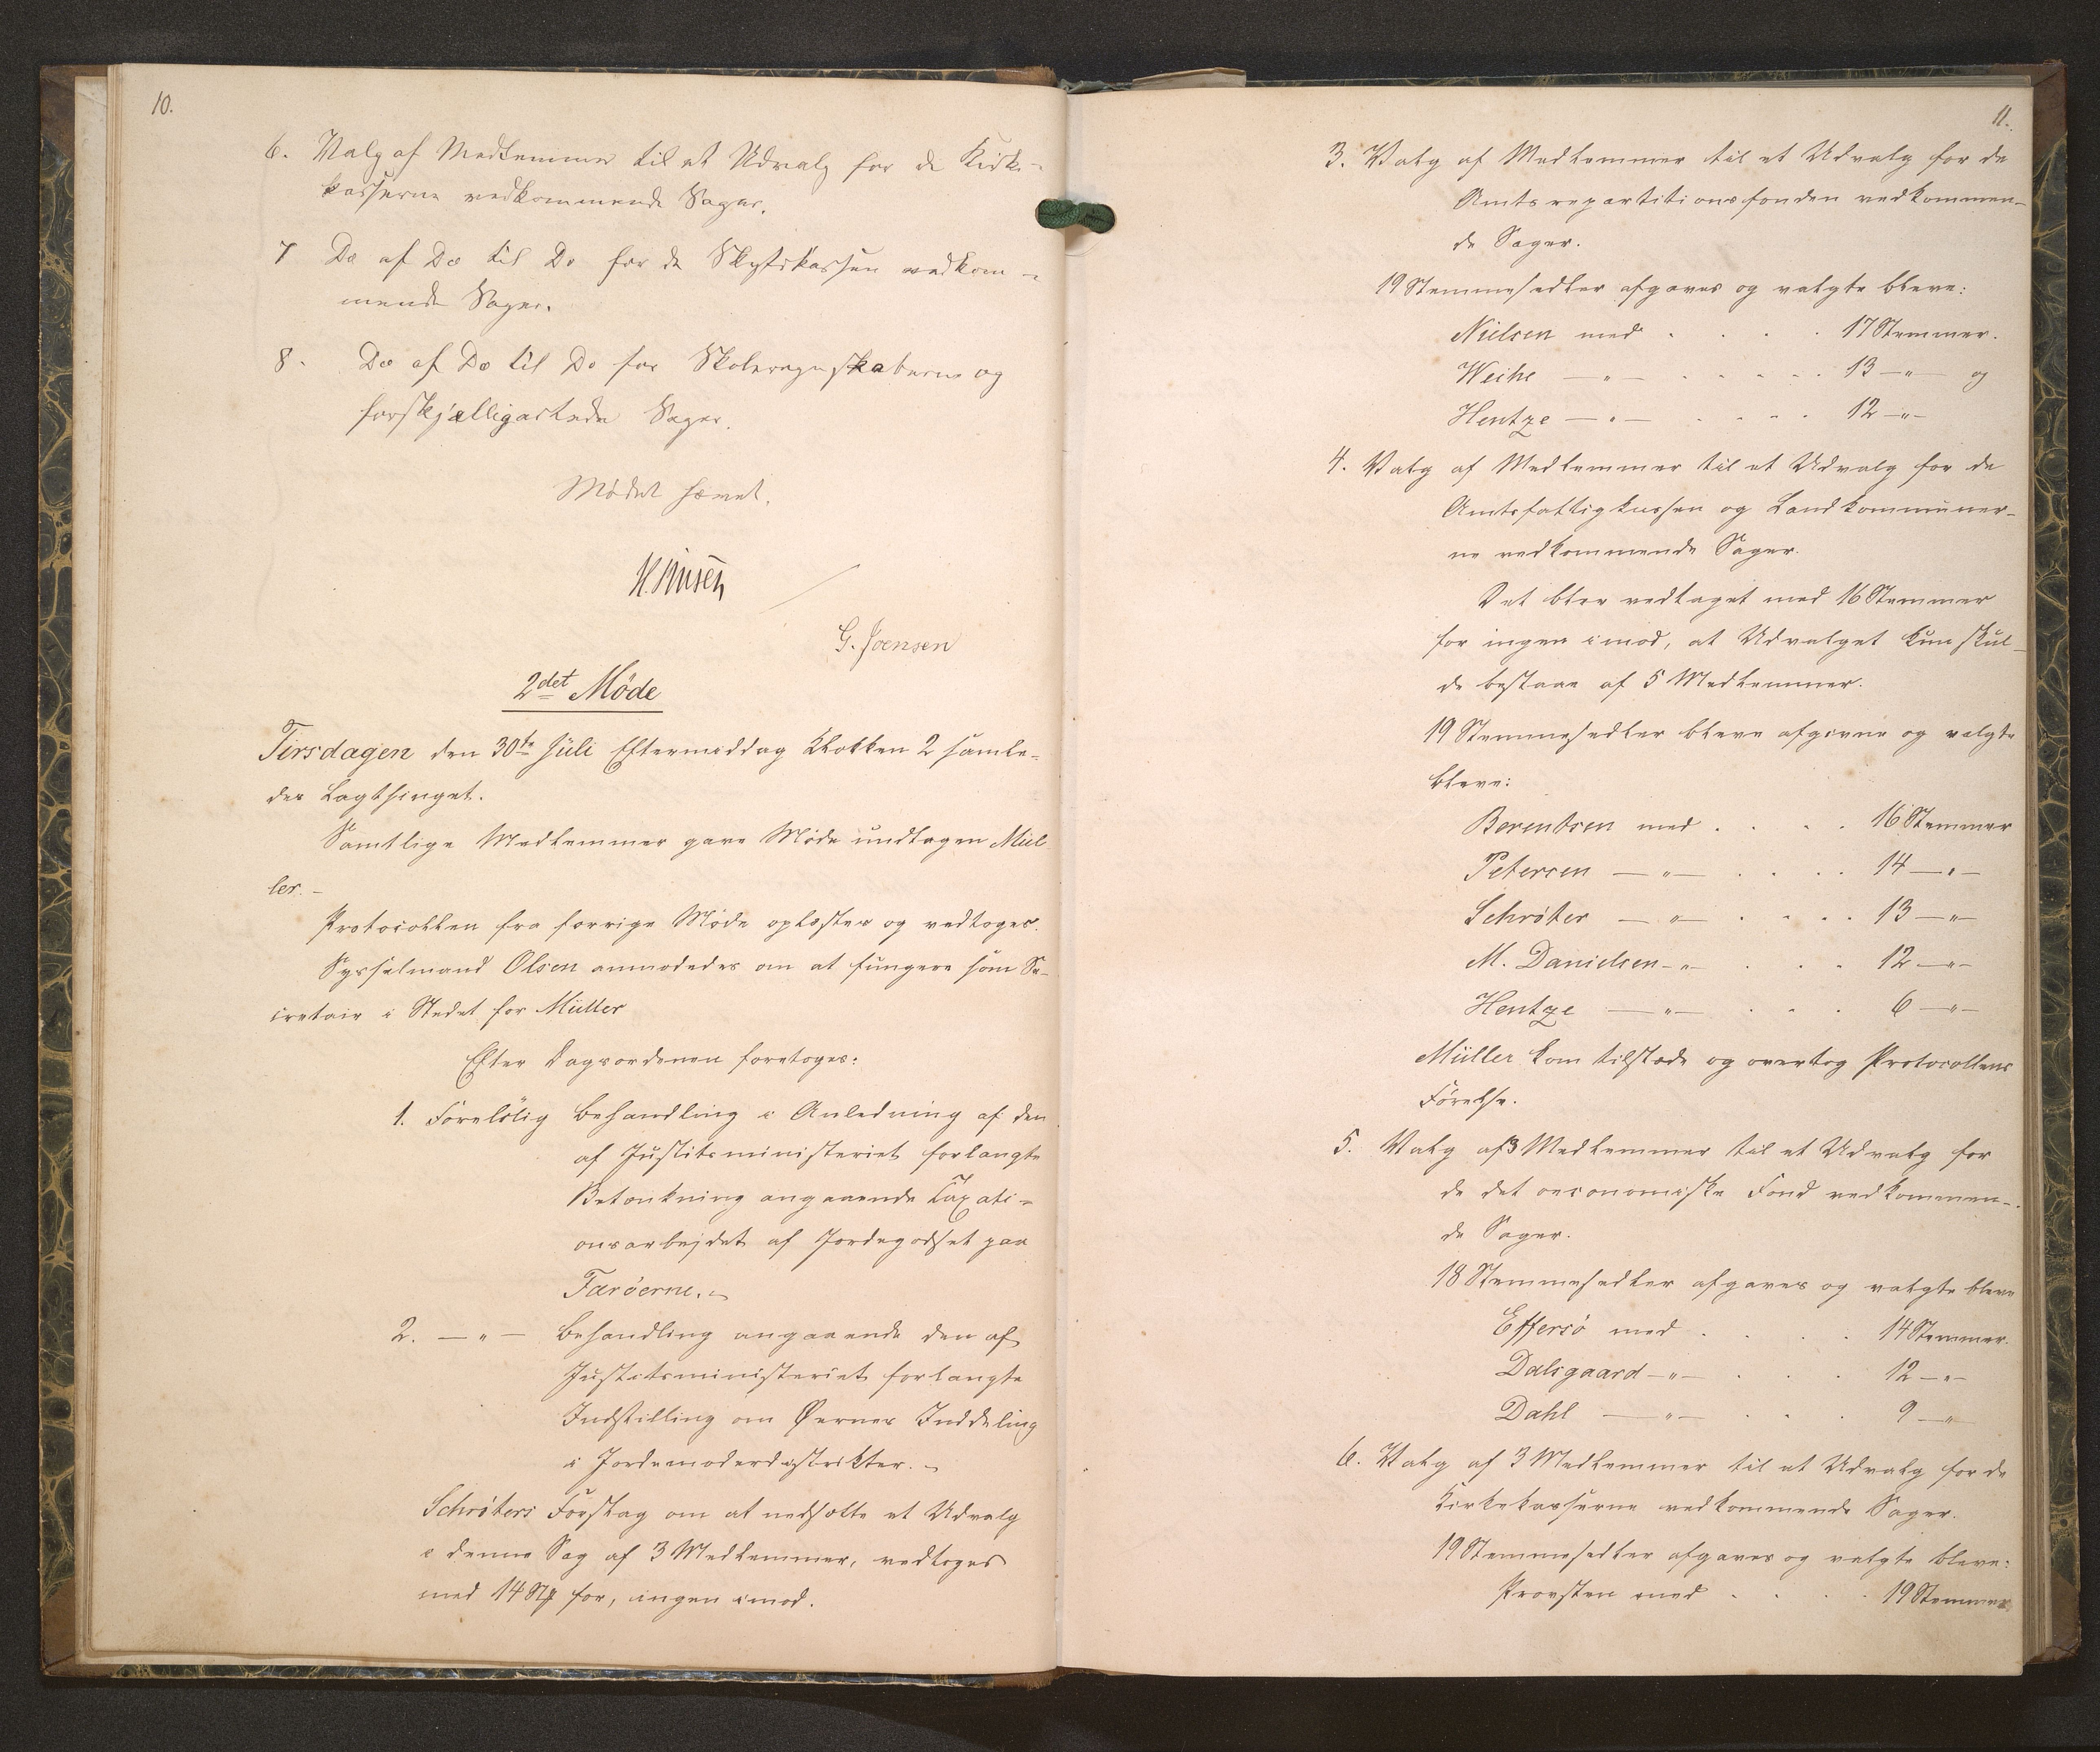 10.
6. Valg af Medlemmer til et Udvalg for de Kirke-
kasserne vedkommende Sager.
7 Do af Do til Do for de Skydskassen vedkom-
mende Sager.
8. Do af Do til Do for Skoleregnskaberne og
forskjælligartede Sager.
Mødet hævet.
G. Joensen
2det Møde
Tirsdagen den 30te Juli Eftermiddag Klokken 2 samle-
des Lagthinget.
Samtlige Medlemmer gave Møde undtagen Mül-
ler. -
Protocollen fra forrige Møde oplæstes og vedtoges.
Sysselmand Olsen anmodedes om at fungere som Se-
cretair i Stedet for Müller
Efter Dagsordenen foretoges:
1. Foreløbig Behandling i Anledning af den
af Justitsministeriet forlangte
Betænkning angaaende Taxati-
onsarbejdet af Jordegodset paa
Færöerne. -
2. — " — Behandling angaaende den af
Justitsministeriet forlangte
Indstilling om Øernes Inddeling
i Jordemoderdistrikter. -
Schrøters Forslag om at nedsætte et Udvalg
i denne Sag af 3 Medlemmer, vedtoges
med 14 St for, ingen imod.
11.
3. Valg af Medlemmer til et Udvalg for de
Amtsrepartitionsfonden vedkommen-
de Sager.
19 Stemmesedler afgaves og valgte bleve:
Nielsen med . . . . 17 Stemmer.
Weihe — " — . . . . . 13 — " — og
Hentze — " — . . . . 12 — " —
4. Valg af Medlemmer til et Udvalg for de
Amtsfattigkassen og Landkommuner-
ne vedkommende Sager.
Det blev vedtaget med 16 Stemmer
for ingen imod, at Udvalget kun skul-
de bestaae af 5 Medlemmer.
19 Stemmesedler bleve afgivne og valgte
bleve:
Berentsen med . . . . 16 Stemmer
Petersen — " — . . . . 14 — " —
Schrøter — " — . . . . 13 — " —
M. Danielsen - " — . . . 12 — " —
Hentze — " — . . . 6 — " —
Müller kom tilstede og overtog Protocollens
Førelse.
5. Valg af 3 Medlemmer til et Udvalg for
de det oeconomiske Fond vedkommen-
de Sager.
18 Stemmesedler afgaves og valgte bleve
Effersö med . . . . 14 Stemmer.
Dalsgaard — " — . . . 12 — " —
Dahl — " — . . . 9 — " —
6. Valg af 3 Medlemmer til et Udvalg for de
Kirkekasserne vedkommende Sager.
19 Stemmesedler afgaves og valgte bleve:
Provsten med . . . . 19 Stemmer